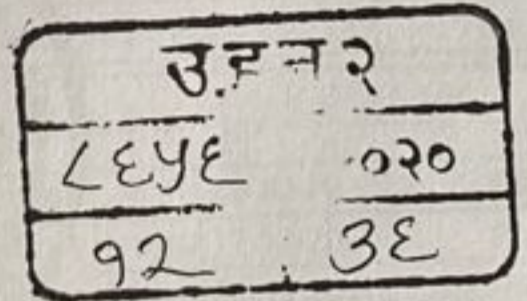 उ.ह न २
८६५६ ०२०
१२ ३६